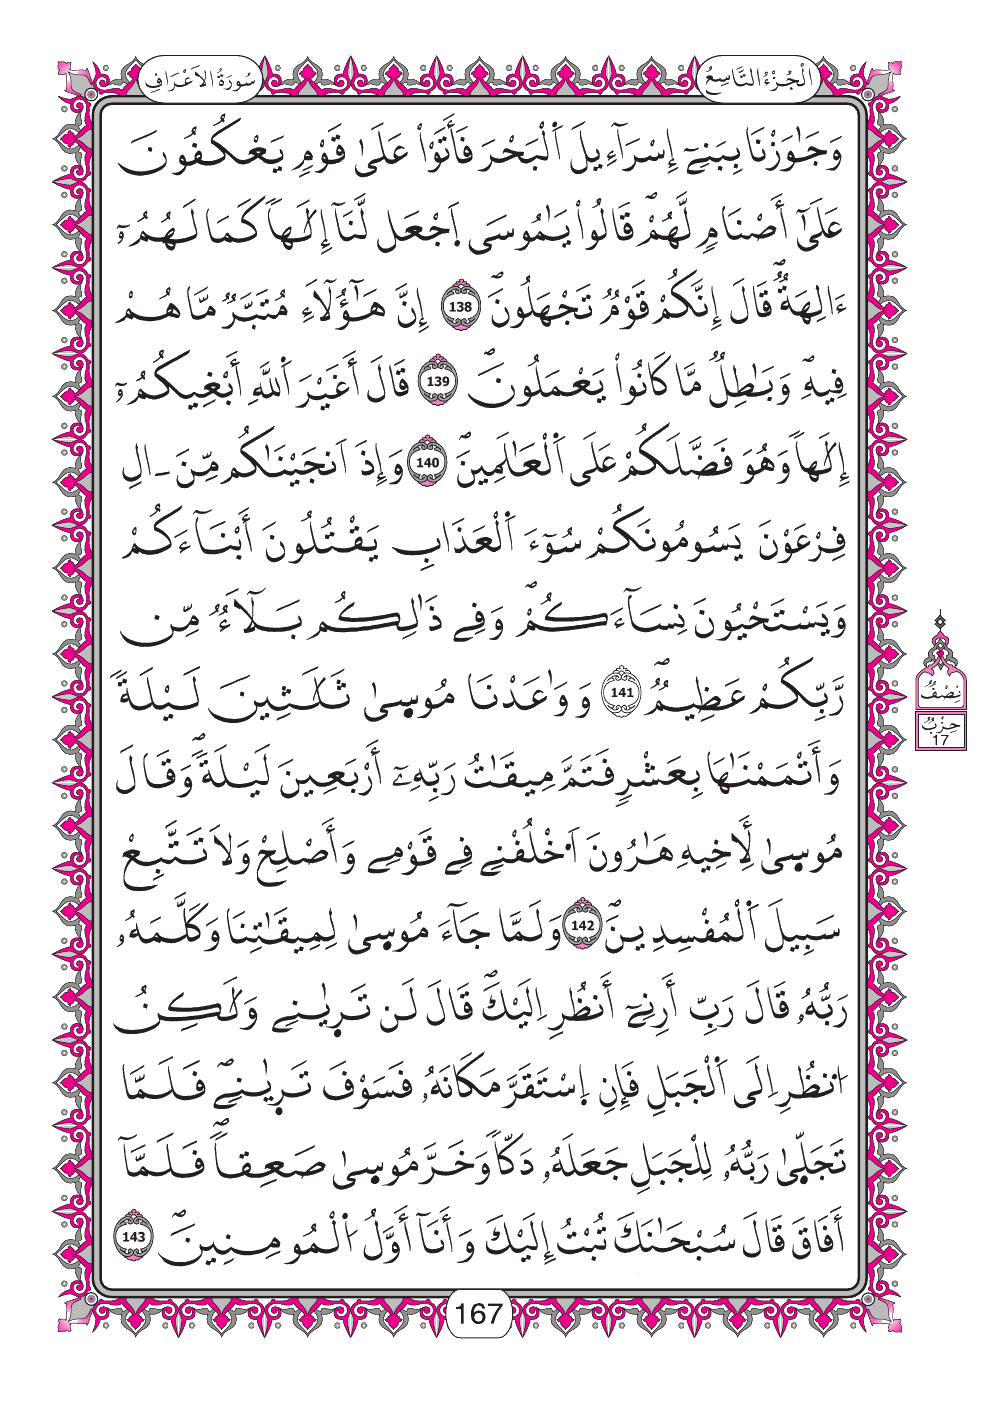 الْجُزْءُ التَّاسِعُ
سُورَةُ الاَعْرَافِ
وَجَٰوَزْنَا بِبَنِےٓ إِسْرَآءِيلَ اَ۬لْبَحْرَ فَأَتَوْاْ عَلَىٰ قَوْمٖ يَعْكُفُونَ
عَلَىٰٓ أَصْنَامٖ لَّهُمْۖ قَالُواْ يَٰمُوسَى اَ۪جْعَل لَّنَآ إِلَٰهاٗ كَمَا لَهُمُۥٓ
ءَالِهَةٞۖ قَالَ إِنَّكُمْ قَوْمٞ تَجْهَلُونَۖ 138 إِنَّ هَٰٓؤُلَآءِ مُتَبَّرٞ مَّا هُمْ
فِيهِۖ وَبَٰطِلٞ مَّا كَانُواْ يَعْمَلُونَۖ 139 قَالَ أَغَيْرَ اَ۬للَّهِ أَبْغِيكُمُۥٓ
إِلَٰهاٗ وَهُوَ فَضَّلَكُمْ عَلَى اَ۬لْعَٰلَمِينَۖ 140 وَإِذَ اَنجَيْنَٰكُم مِّنَ ـ الِ
فِرْعَوْنَ يَسُومُونَكُمْ سُوٓءَ اَ۬لْعَذَابِ يَقْتُلُونَ أَبْنَآءَكُمْ
وَيَسْتَحْيُونَ نِسَآءَكُمْۖ وَفِے ذَٰلِكُم بَلَآءٞ مِّن
رَّبِّكُمْ عَظِيمٞۖ 141 وَوَٰعَدْنَا مُوسۭيٰ ثَلَٰثِينَ لَيْلَةٗ
وَأَتْمَمْنَٰهَا بِعَشْرٖ فَتَمَّ مِيقَٰتُ رَبِّهِۦٓ أَرْبَعِينَ لَيْلَةٗۖ وَقَالَ
مُوسۭيٰ لِأَخِيهِ هَٰرُونَ اَ۟خْلُفْنِے فِے قَوْمِے وَأَصْلِحْ وَلَا تَتَّبِعْ
سَبِيلَ اَ۬لْمُفْسِدِينَۖ 142 وَلَمَّا جَآءَ مُوسۭيٰ لِمِيقَٰتِنَا وَكَلَّمَهُۥ
رَبُّهُۥ قَالَ رَبِّ أَرِنِےٓ أَنظُرِ اِلَيْكَۖ قَالَ لَن تَرۭيٰنِے وَلَٰكِنُ
اُ۟نظُرِ اِلَى اَ۬لْجَبَلِ فَإِنِ اِ۪سْتَقَرَّ مَكَانَهُۥ فَسَوْفَ تَرۭيٰنِےۖ فَلَمَّا
تَجَلّۭيٰ رَبُّهُۥ لِلْجَبَلِ جَعَلَهُۥ دَكّاٗ وَخَرَّ مُوسۭيٰ صَعِقاٗۖ فَلَمَّآ
أَفَاقَ قَالَ سُبْحَٰنَكَ تُبْتُ إِلَيْكَ وَأَنَآ أَوَّلُ اُ۬لْمُومِنِينَۖ 143
نِصْفُ
حِزْبُ
17
167